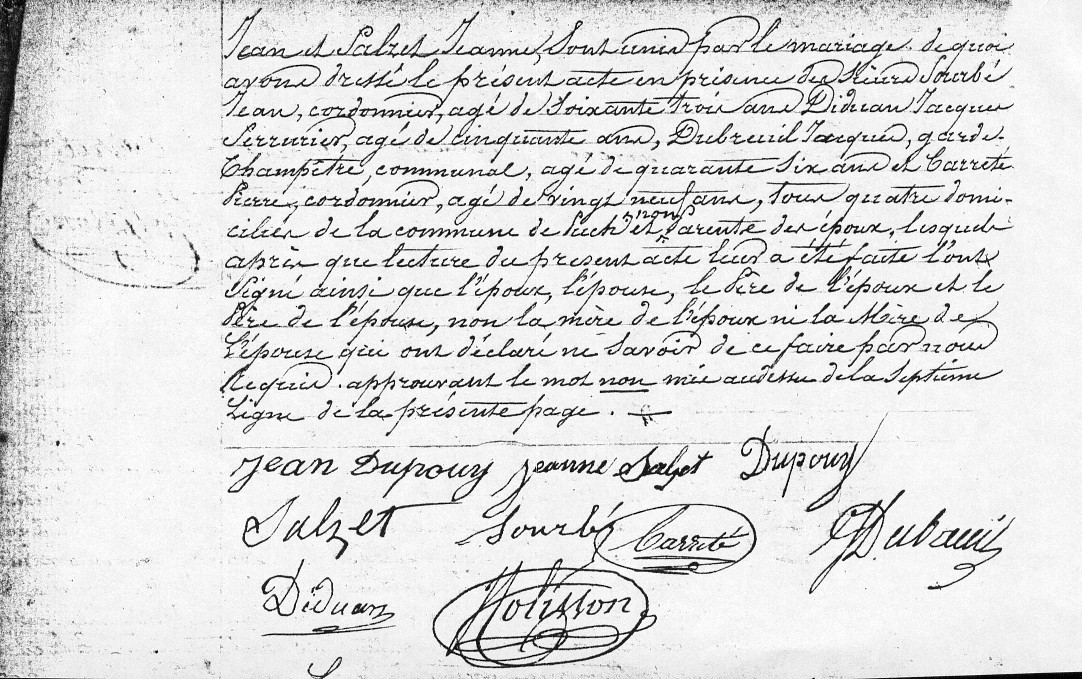 Jean et Salzet Jeanne, Sont unis par le mariage. de quoi
avons dressé le présent acte en présence des Sieurs Sourbé
Jean, cordonnier, agé de Soixante trois ans Diduan Jacques
Serrurier, agé de cinquante ans, Dubreuil Jacques, garde-
Champêtre, communal, agé de quarante Six ans et Carreté
Pierre, cordonnier, agé de vingt neuf ans, tous quatre domi-
ciliés de la commune de Puch et non Parents des époux, lesquels
après que lecture du présent acte leur a été faite l'ont
Signé ainsi que l'époux, l'épouse, le Père de l'époux et le
Père de l'épouse, non la mère de l'époux ni la Mère de
L'épouse qui ont déclaré ne Savoir de ce faire par nous
Requis. approuvant le mot non mis audessus de la Septième
Ligne de la présente page.
Jean Dupouy Jeanne Salzet Dupouy
Salzet Sourbé Carreté
Diduan